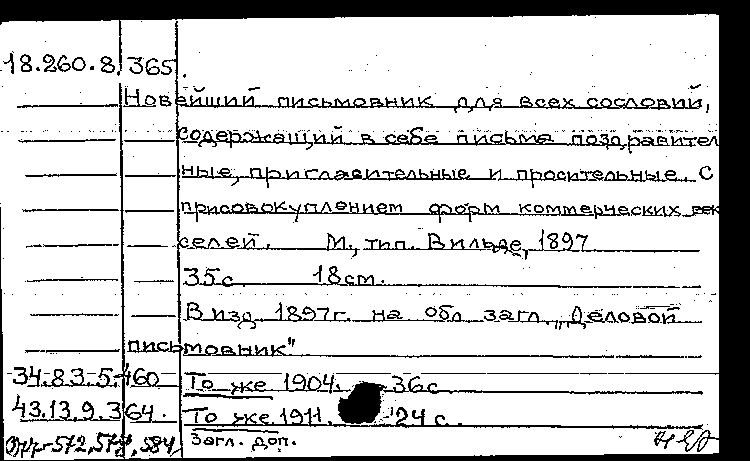 18.260.8.365.
Новейший письмовник для всех сословий,
содержащий в себе письма поздравител
ные, пригласительные и просительные. С
присовокуплением форм коммерческих век
селей. М., тип. Вильде, 1897
35с. 18см.
В изд. 1897г. на обл загл. „Деловой
письмовник"
34.83.5.460 То же 1904. 36с.
43.13.9.364. То же. 1911. 24 с.
Загл. доп.